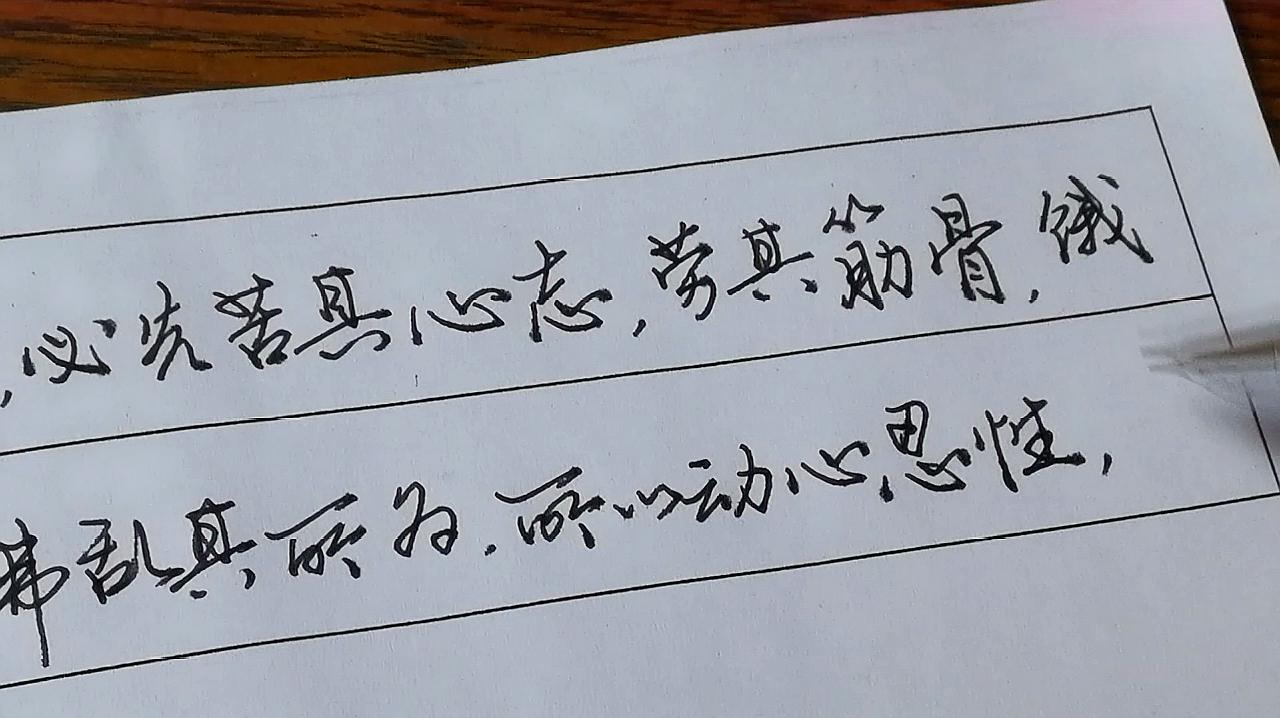 ,必先苦其心志,劳其筋骨,饿
拂乱其所为.所以动心忍性,